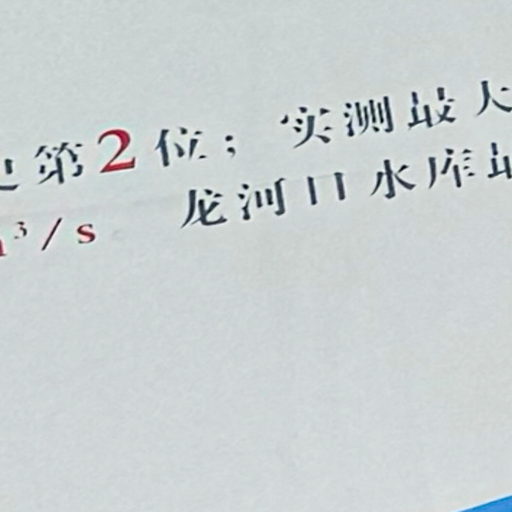 第2位；实测最大
³/s 龙河口水库